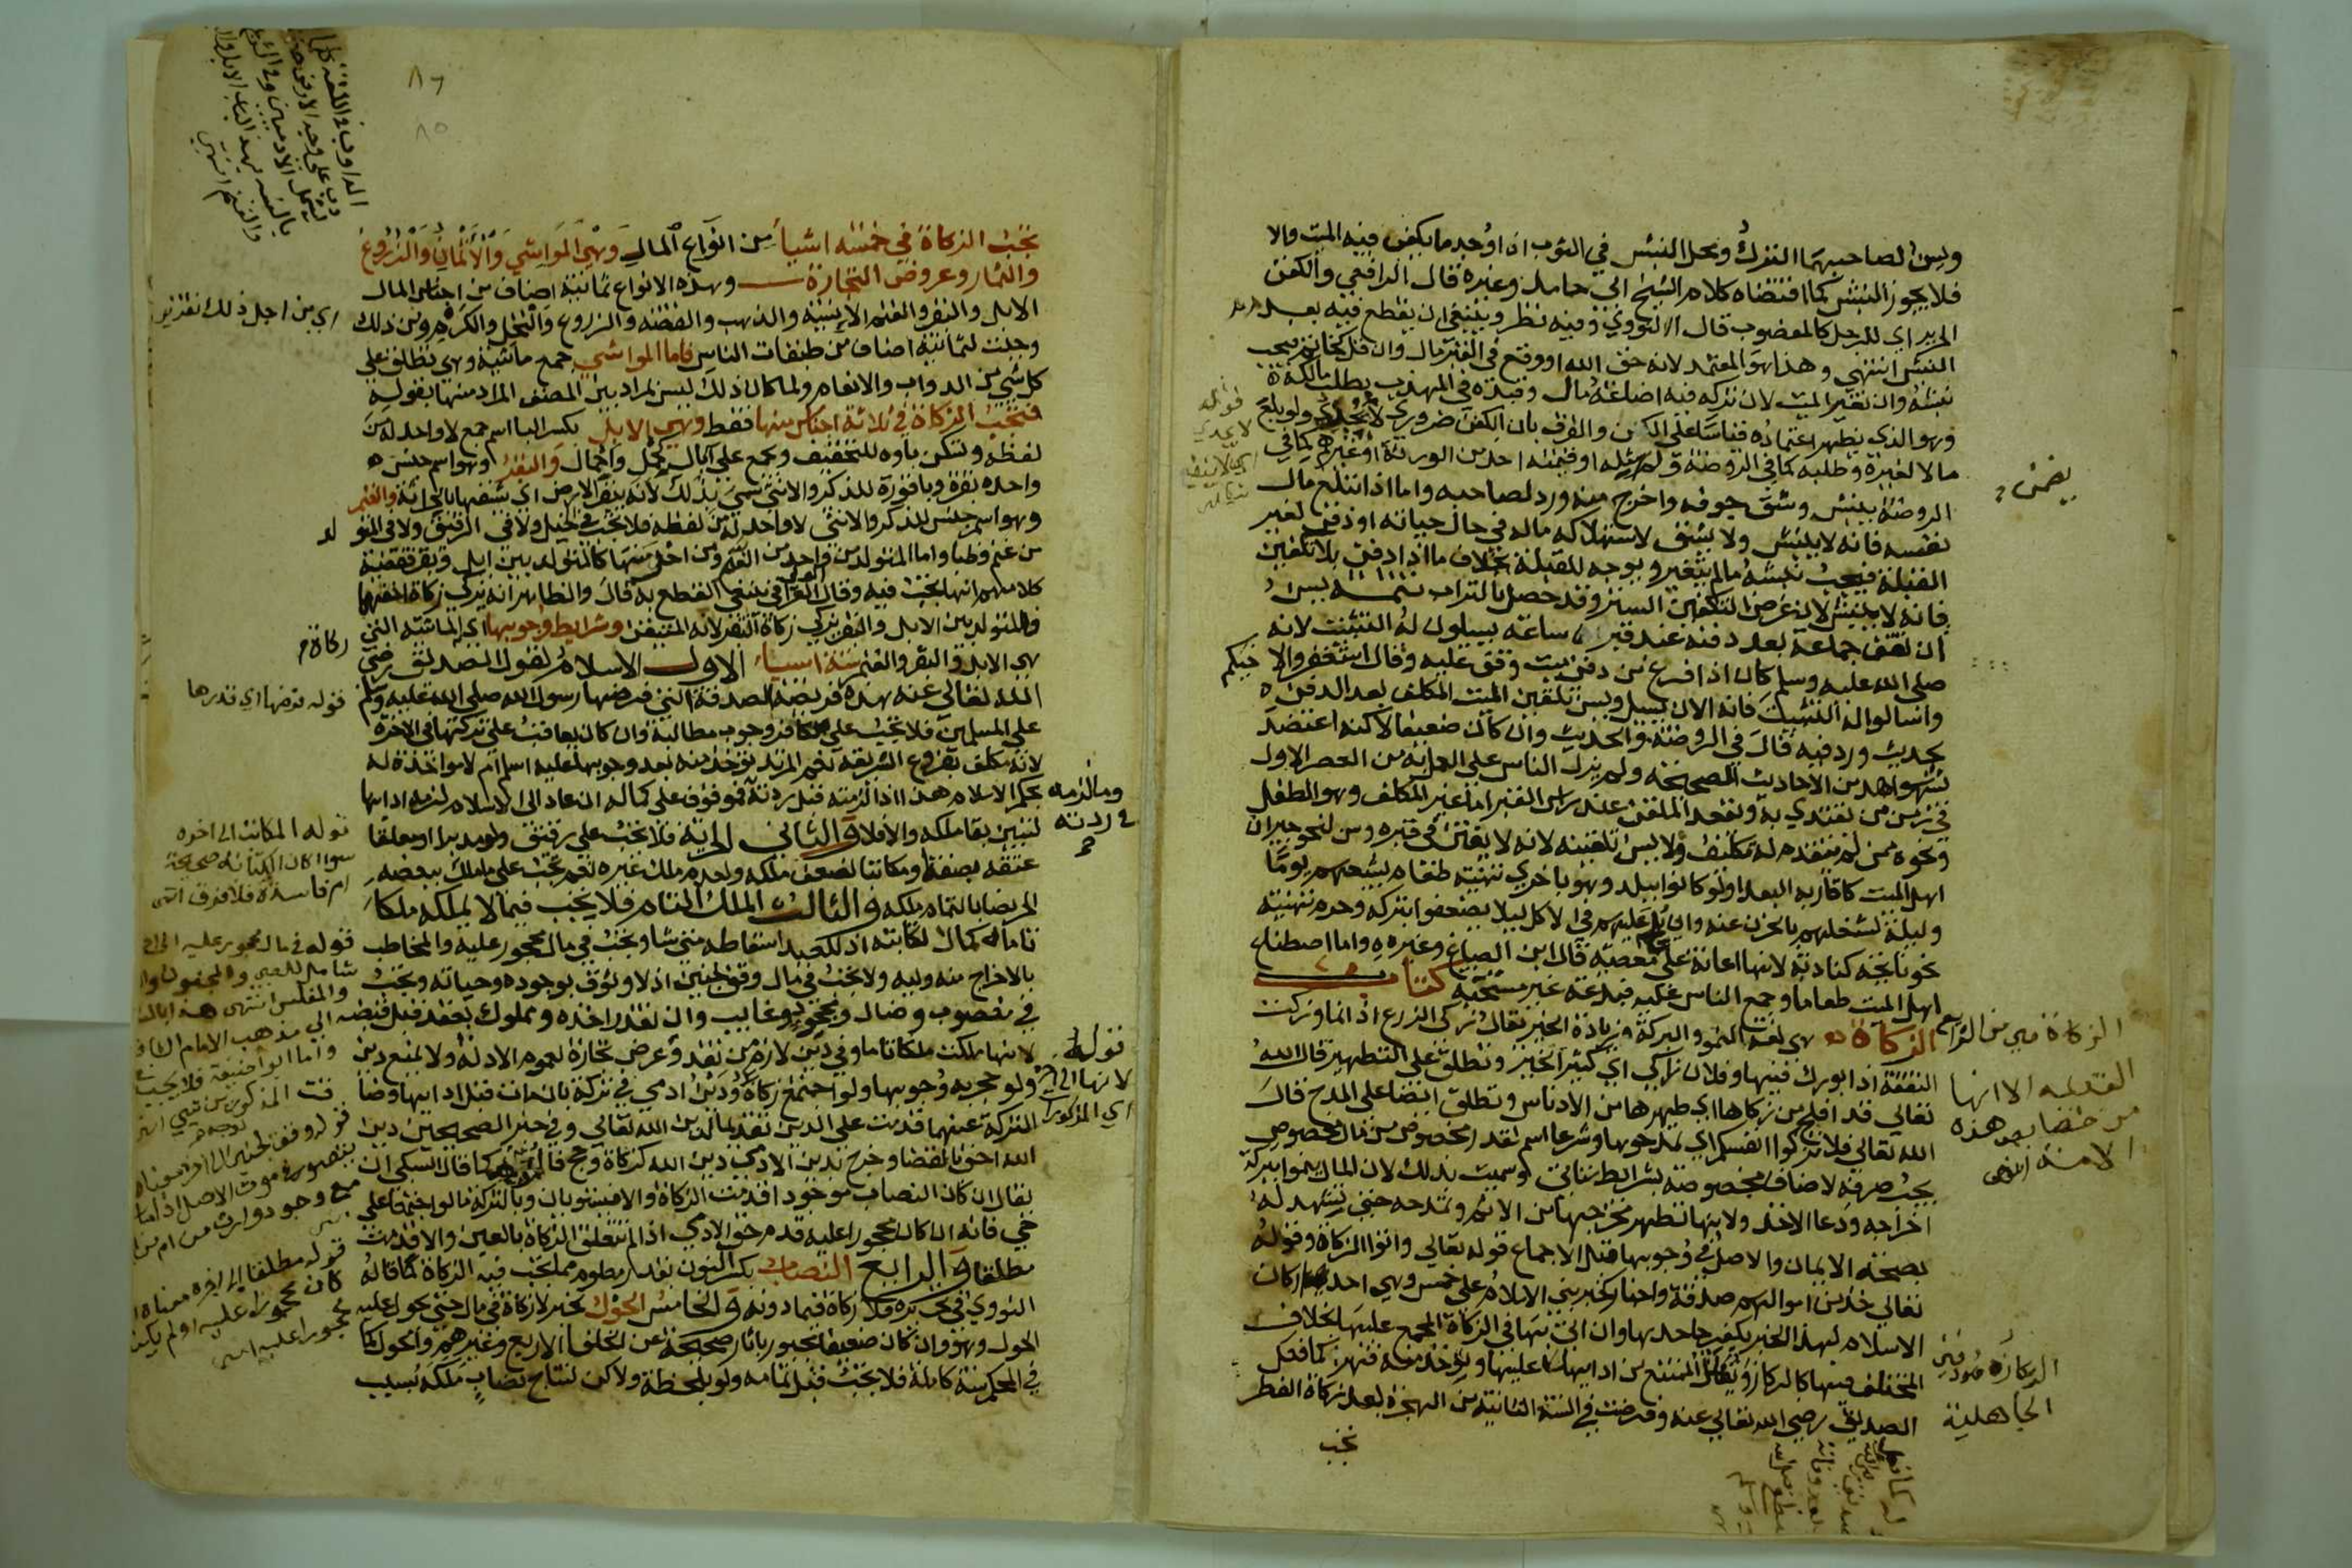 وليس لصاحبهما الترك ومحل النبش في الثوب اذا وجد ما يكفن فيه الميت والا
فلا يجوز النبش كما اقتضاه كلام الشيخ ابي حامد وغيره قال الرافعي والكفن
الحرير اي للرجل كالمغصوب قال النووي وفيه نظر وينبغي ان يقطع فيه بعدم
النبش انتهي وهذا هو المعتمد لانه حق الله او وقع في القبر مال وان قل كخاتم فيجب
نبشه وان تغير الميت لان تركه فيه اضاعة مال وقيده في المهذب بطلب مالكه
وهو الذي يظهر اعتماده قياسا علي الكفن والفرق بان الكفن ضروري لا يجدي ولو بلع
مالا لغيره وطلبه كما في الروضة ولم يضمن مثله او قيمته احد من الورثة او غيرهم كما في
الروضة نبش وشق جوفه واخرج منه ورد لصاحبه واما اذا ابتلع مال
نفسه فانه لا ينبش ولا يشق لاستهلاكه ماله في حال حياته او دفن لغير
القبلة فيجب نبشه ما لم يتغير ويوجه للقبلة بخلاف ما اذا دفن بلا تكفين
فانه لا ينبش لان غرض التكفين الستر وقد حصل بالتراب تتمة يسن
ان تقف جماعة بعد دفنه عند قبره ساعة يسيلون له التثبيت لانه
صلي الله عليه وسلم كان اذا فرغ من دفن ميت وقف عليه وقال استغفروا لاخيكم
واسالوا له التثبيت فانه الان يسيل ويسن تلقين الميت المكلف بعد الدفن
بحديث ورد فيه قال في الروضة والحديث وان كان ضعيفا لاكنه اعتضد
بشواهد من الاحاديث الصحيحة ولم يزل الناس علي العمل به من العصر الاول
في زمن من يقتدي به ويقعد الملقن عند راس القبر اما غير المكلف وهو الطفل
ونحوه ممن لم يتقدم له تكليف فلا يسن تلقينه لانه لا يفتن في قبره وسن لنحو جيران
اهل الميت كاقاربه البعدا ولو كانوا ببلد وهو باخري تهيئة طعام يشبعهم يوما
وليلة لشغلهم بالحزن عنه وان يلح عليهم في الاكل ليلا يضعفوا بتركه وحرم تهيئته
لنحو نايحة كنادبة لانها اعانة علي معصية قال ابن الصباغ وغيره واما اصطناع
اهل الميت طعاما وجمع الناس عليه فبدعة غير مستحبة كتاب
الزكاة هي لغة النمو والبركة وزيادة الخير يقال زكي الزرع اذا نما وزكت
النفقة اذا بورك فيها وفلان زاكي اي كثير الخير وتطلق علي التطهير قال الله
تعالي قد افلح من زكاها اي طهرها من الادناس وتطلق ايضا علي المدح قال
الله تعالي فلا تزكوا انفسكم اي تمدحوها وشرعا اسم لقدر مخصوص من مال مخصوص
يجب صرفه لاصناف مخصوصة بشرايط تاتي وسميت بذلك لان المال ينموا ببركة
اخراجه ودعا الاخذ ولانها تطهر مخرجها من الاثم وتمدحه حتي تشهد له
بصحة الايمان والاصل في وجوبها قبل الاجماع قوله تعالي واتوا الزكاة وقوله
تعالي خذ من اموالهم صدقة واخبار كخبر بني الاسلام علي خمس وهي احد اركان
الاسلام لهذا الخبر يكفر جاحدها وان اتي بها في الزكاة المجمع عليها بخلاف
المختلف فيها كالركاز ويقاتل الممتنع من ادايها عليها وتوخذ منه قهرا كما فعل
الصديق رضي الله تعالي عنه وفرضت في السنة الثانية من الهجرة بعد زكاة الفطر
تجب
قوله
لا يجدي
يضمن
الزكاة هي من الشرايع
القديمة الا انها
من خصايص هذه
الامة انتهي
الركاز هو دفين
الجاهلية
تجب الزكاة في خمسة اشيا من انواع المال وهي المواشي والاثمان والزروع
والثمار وعروض التجارة وهذه الانواع ثمانية اصناف من اجناس المال
الابل والبقر والغنم الانسية والذهب والفضة والزروع والنخل والكرم ومن ذلك
وجبت لثمانية اصناف من طبقات الناس فاما المواشي جمع ماشية وهي تطلق علي
كل شي من الدواب والانعام ولما كان ذلك ليس بمراد بين المصنف المراد منها بقوله
فتجب الزكاة في ثلاثة اجناس منها فقط وهي الابل بكسر البا اسم جمع لا واحد له من
لفظه وتسكن باوه للتخفيف ويجمع علي ابال كحمل واحمال والبقر وهو اسم جنس
واحده بقرة وباقورة للذكر والانثي سمي بذلك لانه يبقر الارض اي يشقها بالحراثة والغنم
وهو اسم جنس للذكر والانثي لا واحد له من لفظه فلا تجب في الخيل ولا في الرقيق ولا في المتولد
من غنم وظبا واما المتولد من واحد من النعم ومن اخر منها كالمتولد بين ابل وبقر فقضية
كلامهم انها تجب فيه وقال العراقي ينبغي القطع به قال والظاهر انه يزكي زكاة اخفهما
فالمتولد بين الابل والبقر يزكي زكاة البقر لانه المتيقن وشرايط وجوبها اي الماشية التي
هي الابل والبقر والغنم ستة اشيا الاول الاسلام لقول الصديق رضي
الله تعالي عنه هذه فريضة الصدقة التي فرضها رسول الله صلي الله عليه وسلم
علي المسلمين فلا تجب علي الكافر وجوب مطالبة وان كان يعاقب علي تركها في الاخرة
لانه مكلف بفروع الشريعة نعم المرتد توخذ منه بعد وجوبها عليه اسلم ام لا مواخذة له
بحكم الاسلام هذا اذا لزمته قبل ردته وما لزمه في ردته فموقوف علي كماله ان عاد الي الاسلام لزمه ادايها
لتبين بقا ملكه والا فلا والثاني الحرية فلا تجب علي رقيق ولو مدبرا او معلقا
عتقه بصفة او مكاتبا لضعف ملكه ولعدم ملك غيره نعم تجب علي من ملك ببعضه
الحر نصابا لتمام ملكه والثالث الملك التام فلا يجب فيما لا يملكه ملكا
تاما كمال كتابة اذ للعبد اسقاطه متي شا وتجب في مال محجور عليه والمخاطب
بالاخراج منه وليه ولا تجب في مال وقف لجنين اذ لا وثوق بوجوده وحياته وتجب
في مغصوب وضال ومجحود وغايب وان تعذر اخذه ومملوك بعقد قبل قبضه
لانها ملكت ملكا تاما وفي دين لازم من نقد وعرض تجارة لعموم الادلة ولا يمنع دين
ولو حجر به وجوبها ولو اجتمع زكاة ودين ادمي في تركة بان مات قبل ادايها وضاقت
التركة عنهما قدمت علي الدين تقديما لدين الله تعالي وفي خبر الصحيحين دين
الله احق بالقضا وخرج بدين الادمي دين الله كزكاة وحج قال
تعالي ان كان النصاب موجودا قدمت الزكاة والا فيستويان وبالتركة ما لو اجتمعا علي
حي فانه ان كان محجورا عليه قدم حق الادمي اذا لم تتعلق الزكاة بالعين والا قدمت
مطلقا والرابع النصاب بكسر النون قدر معلوم مما تجب فيه الزكاة كما قاله
النووي في تحريره فلا زكاة فيما دونه والخامس الحول لخبر لا زكاة في مال حتي يحول عليه
الحول وهو وان كان ضعيفا مجبور باثار صحيحة عن الخلفا الاربع وغيرهم والحول كما
في المحكم سنة كاملة فلا تجب قبل تمامه ولو بلحظة ولاكن لنتاج نصاب ملكه بسبب
٨٦
٨٥
اي من اجل ذلك
زكاة
قوله فرضها اي قدرها
قوله المكاتب الي اخره
سوا كان الكتابة صحيحة
ام فاسدة فلا فرق انتهي
قوله في مال محجور عليه الي اخره
شامل للصبي والمجنون
والمفلس انتهي
الي مذهب الامام
واما ابو حنيفة فلا يجب
قوله
لانها الي اخره
اي المذكورات
قوله مطلقا الي اخره معناه
كان محجورا عليه او لم يكن
محجورا عليه انتهي